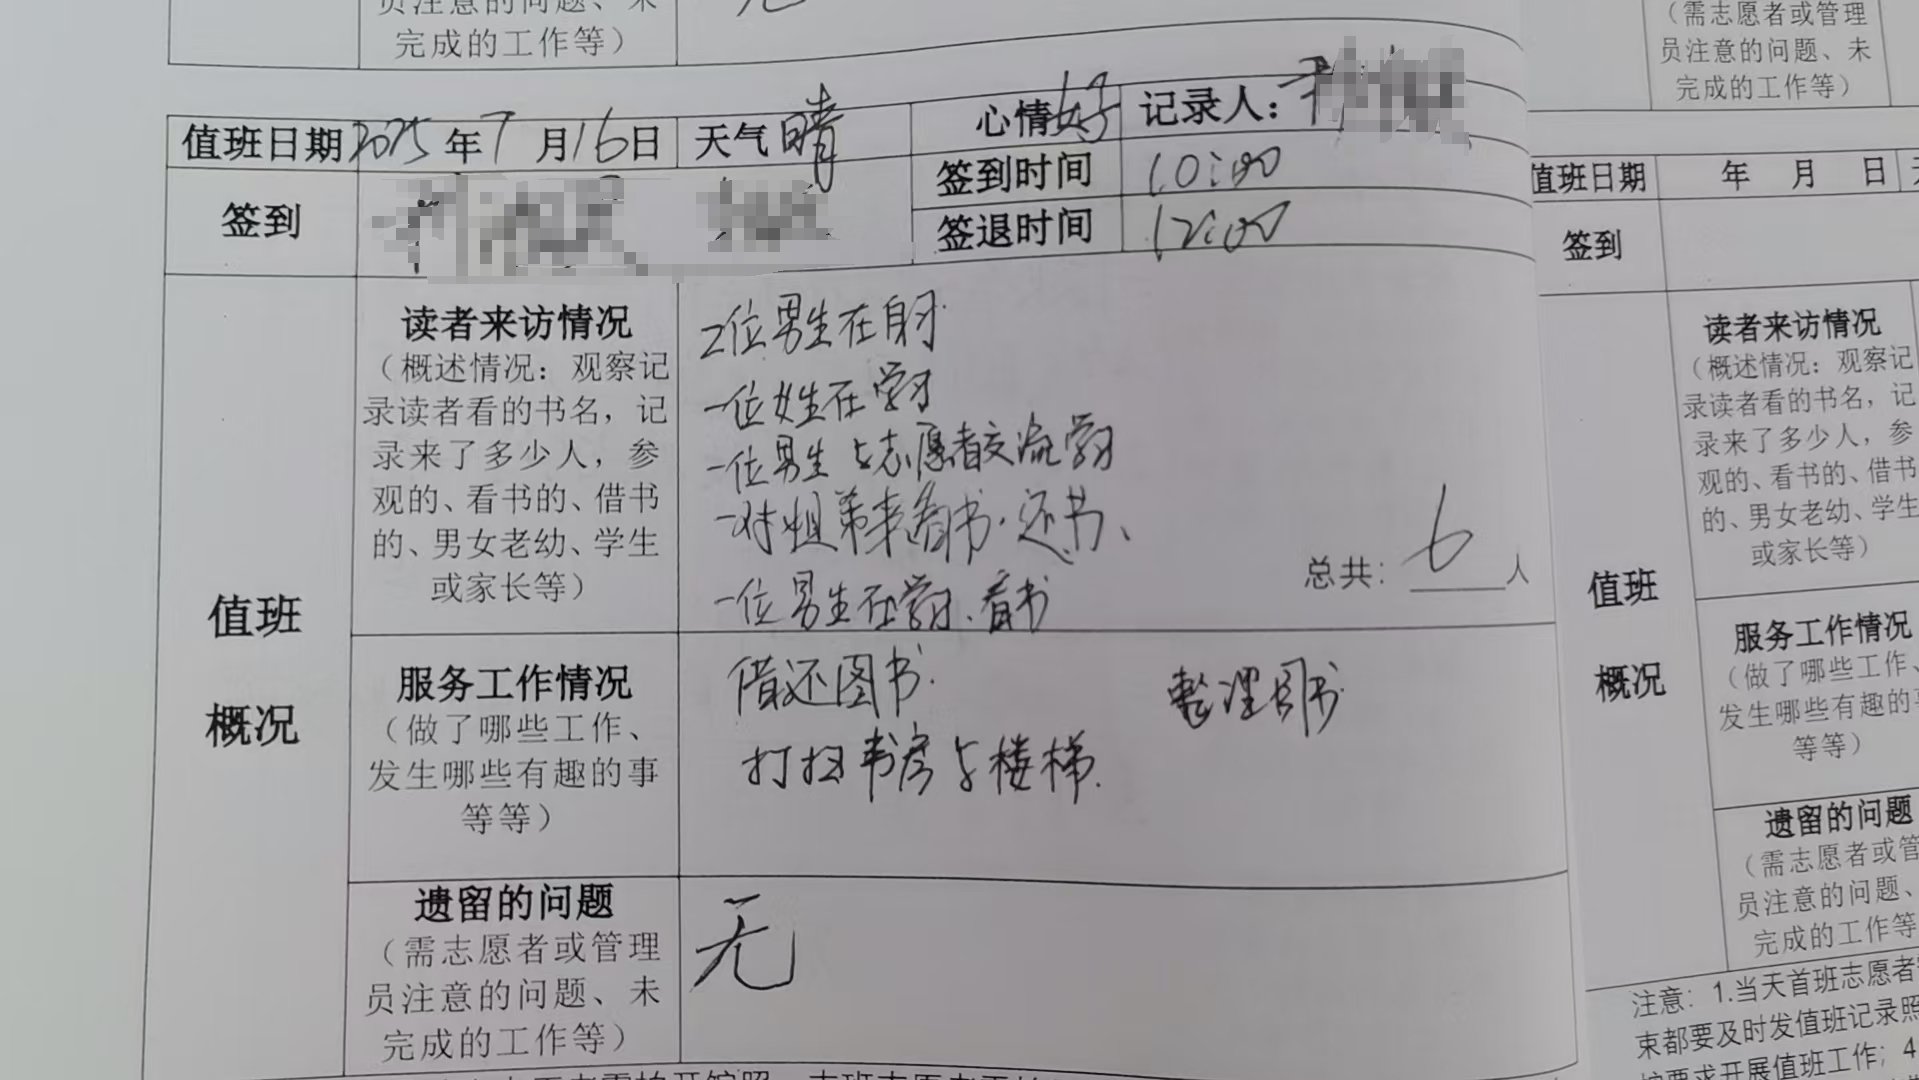 员注意的问题、未
完成的工作等）
无
值班日期2025年7月16日 天气晴 心情好 记录人：
签到 签到时间 10:00
签退时间 12:00
值班
概况
读者来访情况
（概述情况：观察记
录读者看的书名，记
录来了多少人，参
观的、看书的、借书
的、男女老幼、学生
或家长等）
2位男生在
一位女生在学习
一位男生与志愿者交流学习
一对姐弟来看书、还书、
一位男生在学习、看书
总共：6人
服务工作情况
（做了哪些工作、
发生哪些有趣的事
等等）
借还图书.
整理图书
打扫书房与楼梯.
遗留的问题
（需志愿者或管理
员注意的问题、未
完成的工作等）
无
（需志愿者或管理
员注意的问题、未
完成的工作等）
值班日期 年 月 日
签到
值班
概况
读者来访情况
（概述情况：观察记
录读者看的书名，记
录来了多少人，参
观的、看书的、借书
的、男女老幼、学生
或家长等）
服务工作情况
（做了哪些工作、
发生哪些有趣的
等等）
遗留的问题
（需志愿者或管
员注意的问题、
完成的工作等
注意：1.当天首班志愿者
束都要及时发值班记录照
按要求开展值班工作；4